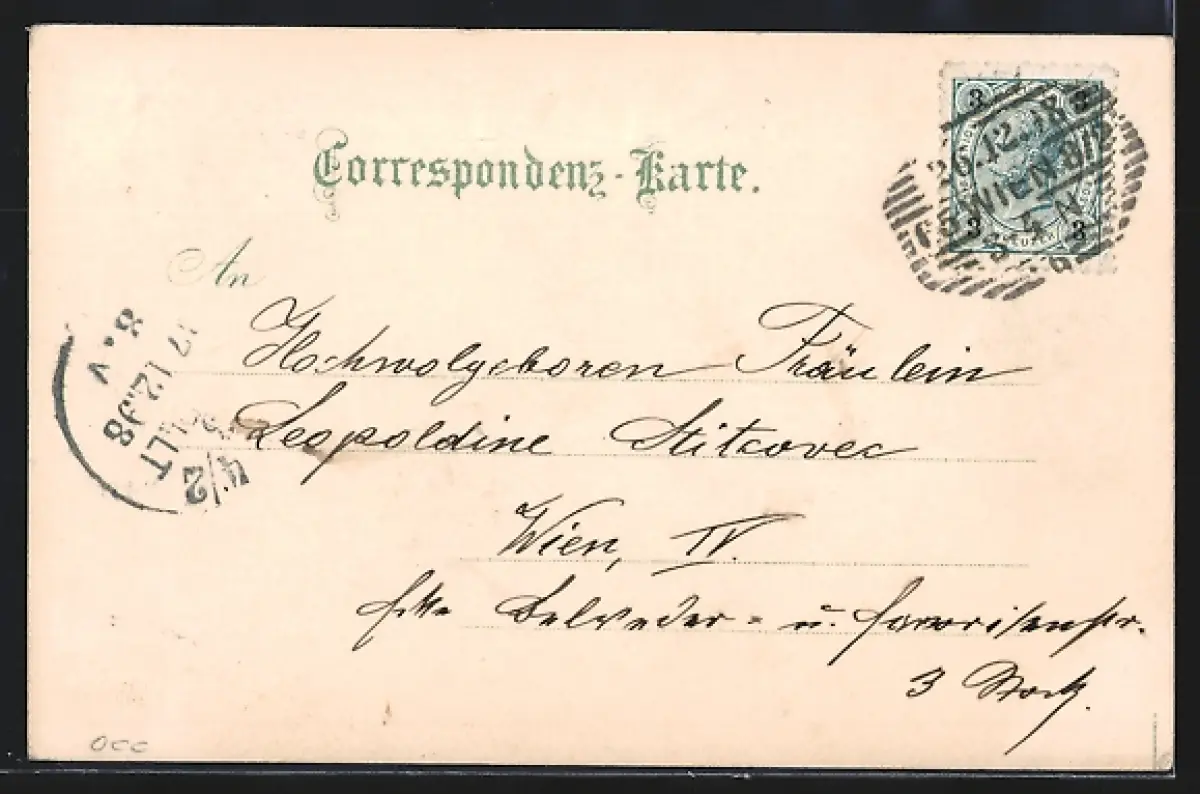 Correspondenz-Karte.
3 3
26.12.98
WIEN 8/1
5 N
3 3
An
Hochwolgeboren Fräulein
Leopoldine Stitcovec
Wien, IV.
Ecke Belveder- u. Favoritenstr.
3 Stock.
8.V
12.98
4/2
occ